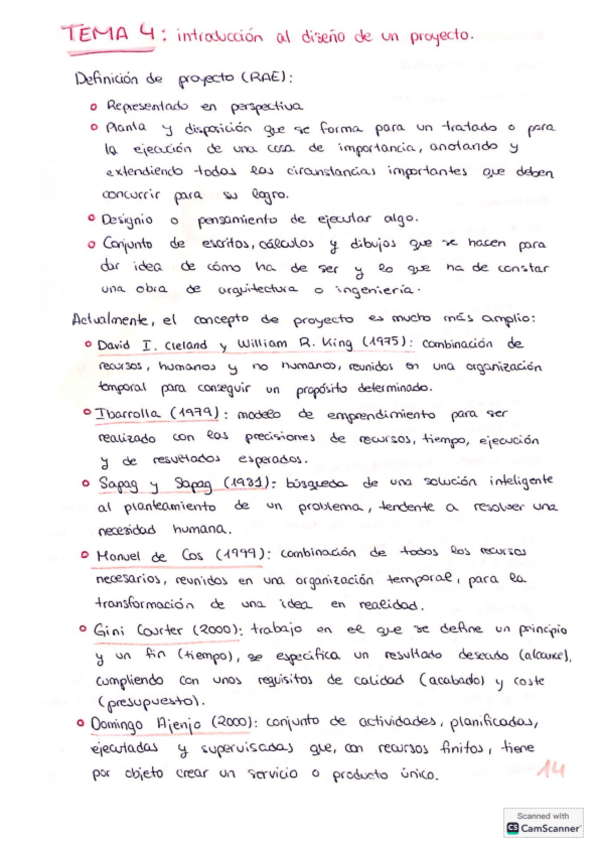 TEMA 4: introducción al diseño de un proyecto.
Definición de proyecto (RAE):
o Representado en perspectiva
o Planta y disposición que se forma para un tratado o para
la ejecución de una cosa de importancia, anotando y
extendiendo todas las circunstancias importantes que deben
concurrir para su logro.
o Designio o pensamiento de ejecutar algo.
o Conjunto de escritos, cálculos y dibujos que se hacen para
dar idea de cómo ha de ser y lo que ha de constar
una obra de arquitectura o ingeniería.
Actualmente, el concepto de proyecto es mucho más amplio:
o David I. Cleland y William R. King (1975): combinación de
recursos, humanos y no humanos, reunidos en una organización
temporal para conseguir un propósito determinado.
o Ibarrolla (1979): modelo de emprendimiento para ser
realizado con las precisiones de recursos, tiempo, ejecución
y de resultados esperados.
o Sapag y Sapag (1981): búsqueda de una solución inteligente
al planteamiento de un problema, tendente a resolver una
necesidad humana.
o Manuel de Cos (1999): combinación de todos los recursos
necesarios, reunidos en una organización temporal, para la
transformación de una idea en realidad.
o Gini Courter (2000): trabajo en el que se define un principio
y un fin (tiempo), se especifica un resultado deseado (alcance),
cumpliendo con unos requisitos de calidad (acabado) y coste
(presupuesto).
o Domingo Ajenjo (2000): conjunto de actividades, planificadas,
ejecutadas y supervisadas que, con recursos finitos, tiene
por objeto crear un servicio o producto único.
14
Scanned with
CS CamScanner